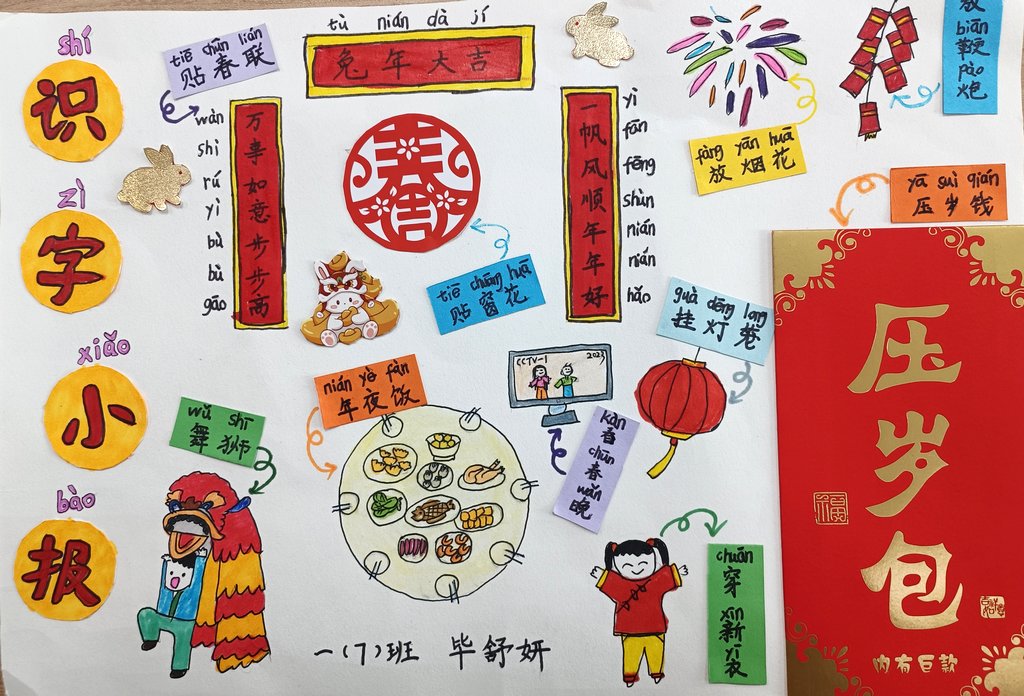 shí
识
zì
字
xiǎo
小
bào
报
tiē chūn lián
贴春联
tù nián dà jí
兔年大吉
wàn shì rú yì bù bù gāo
万事如意步步高
春
吉
yì fān fēng shùn nián nián hǎo
一帆风顺年年好
fàng yān huā
放烟花
放
biān
鞭
pào
炮
yā suì qián
压岁钱
tiē chuāng huā
贴窗花
guà dēng long
挂灯笼
nián yè fàn
年夜饭
CCTV-1 2023
kàn
看
chūn
春
wǎn
晚
wǔ shī
舞狮
chuān
穿
xīn
新
yī
衣
一(7)班 毕舒妍
压岁包
福
内有巨款